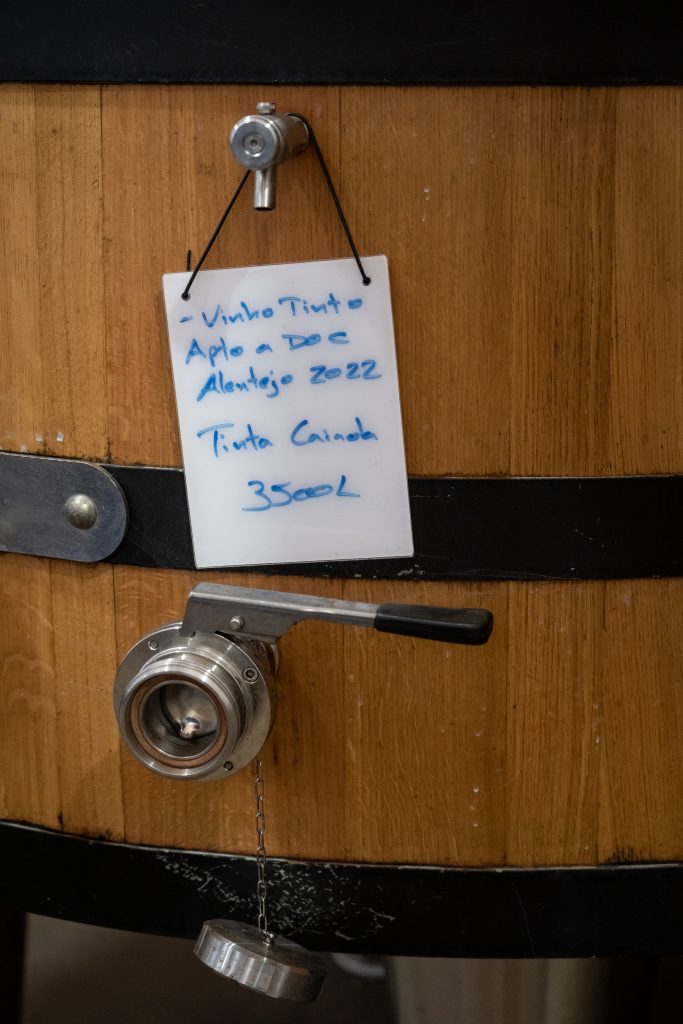 - Vinho Tinto
Apto a DOC
Alentejo 2022
Tinta Caiada
3500L